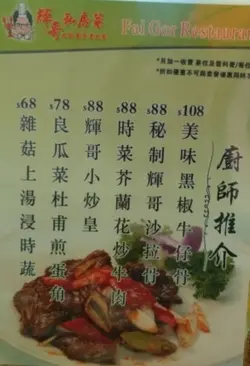 輝哥私房菜
Fai Gor Restaurant
廚師推介
$108 美味黑椒牛仔骨
$88 秘制輝哥沙拉骨
$88 時菜芥蘭花炒牛肉
$88 輝哥小炒皇
$78 良瓜菜杜甫煎蛋角
$68 雜菇上湯浸時蔬